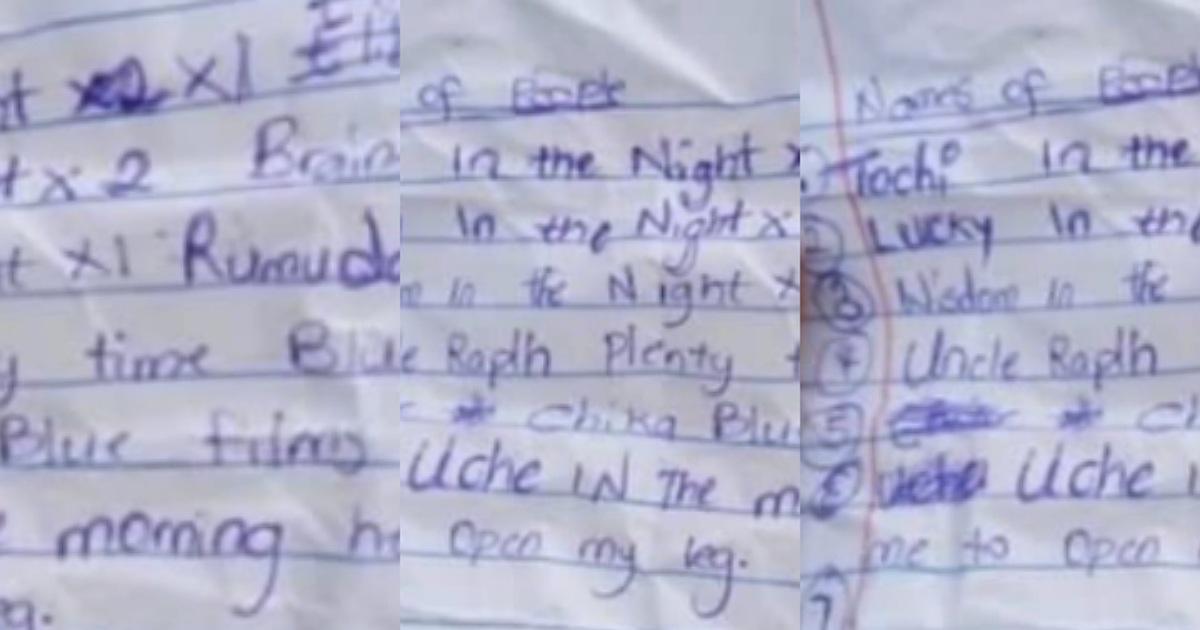 x1
x 2 Brain
x1 Rumud
time Blue
Blue films
morning h
of
In the Night x
In the Night x
in the Night x
Raplh Plenty
Chika Blu
Uche IN The m
Open my leg.
Names of
Tochi In the
② Lucky In the
③ Wisdom in the
④ Uncle Raplh
⑤ Ch
⑥ Uche
me to Open
7